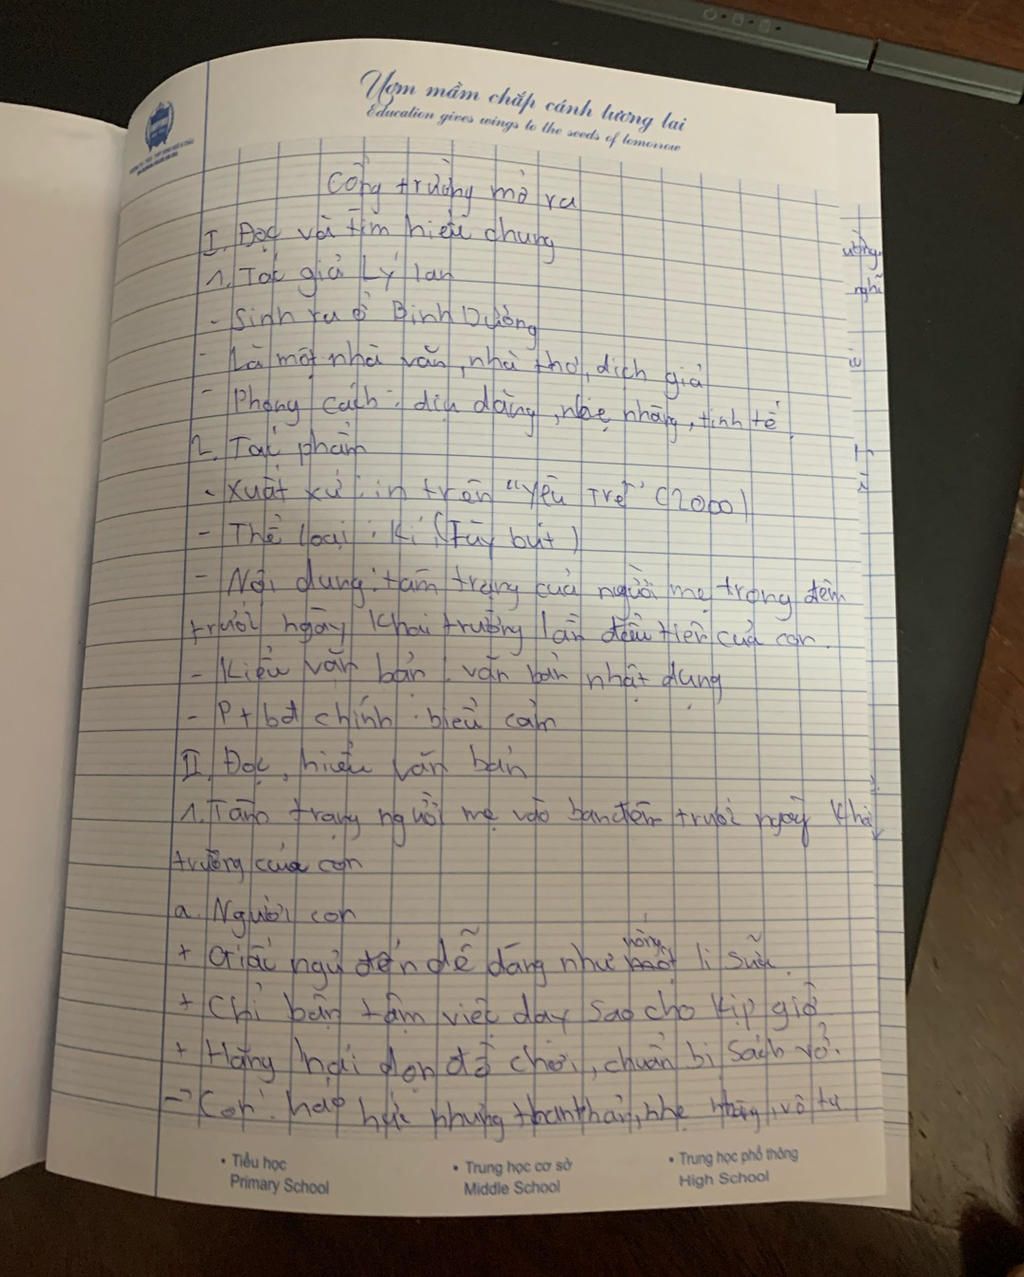 Ươm mầm chắp cánh tương lai
Education gives wings to the seeds of tomorrow
Cổng trường mở ra
I. Đọc và tìm hiểu chung
1. Tác giả Lý lan
- Sinh ra ở Bình Dương
- Là một nhà văn, nhà thơ, dịch giả
- Phong cách: dịu dàng, nhẹ nhàng, tinh tế
2. Tác phẩm
- Xuất xứ: in trên "Yêu Trẻ" (2000)
- Thể loại: Kí (Tùy bút)
- Nội dung: tâm trạng của người mẹ trong đêm
trước ngày khai trường lần đầu tiên của con.
- Kiểu văn bản: văn bản nhật dụng
- P+bđ chính: biểu cảm
II. Đọc, hiểu văn bản
1. Tâm trạng người mẹ vào ban đêm trước ngày khai
trường của con
a. Người con
+ Giấc ngủ đến dễ dàng như uống li sữa.
+ Chỉ bận tâm việc dạy sao cho kịp giờ
+ Hăng hái dọn đồ chơi, chuẩn bị sách vở.
-> Con: háo hức nhưng thanh thản, nhẹ nhàng, vô tư
ường
nghĩ
• Tiểu học
Primary School
• Trung học cơ sở
Middle School
• Trung học phổ thông
High School